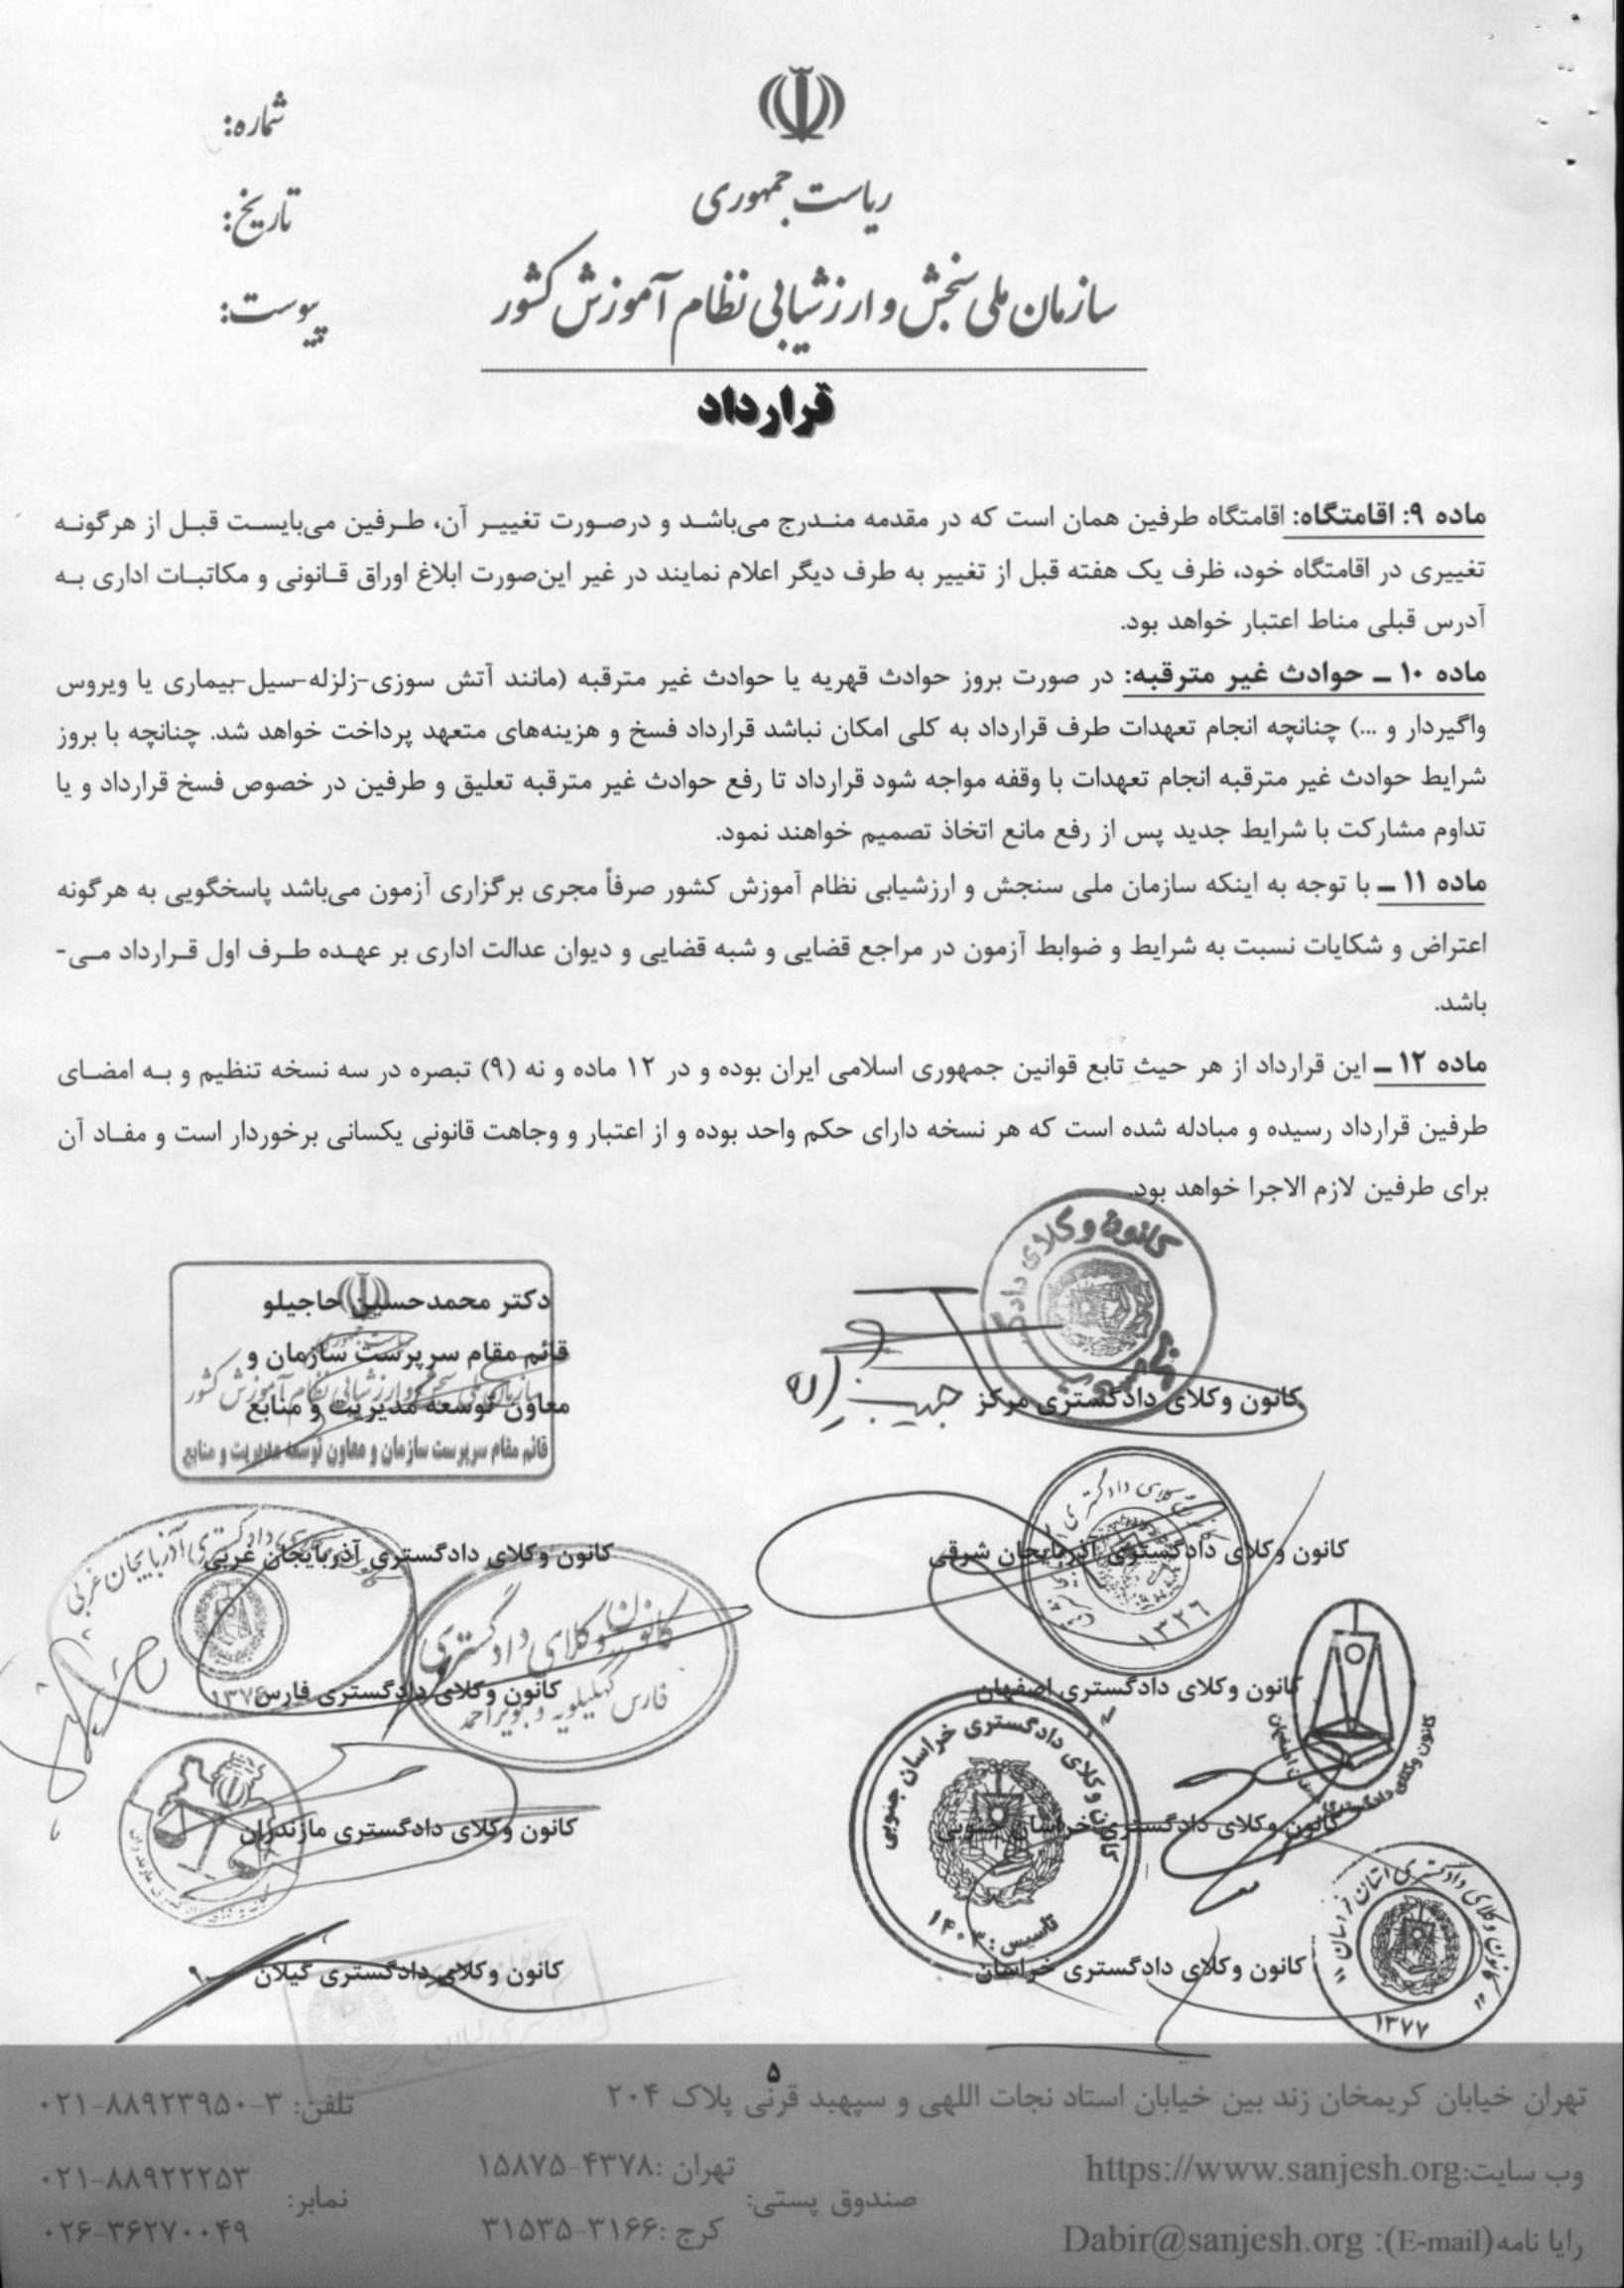 شماره:
تاریخ:
پیوست:
ریاست جمهوری
سازمان ملی سنجش و ارزشیابی نظام آموزش کشور
قرارداد
ماده ۹: اقامتگاه: اقامتگاه طرفین همان است که در مقدمه مندرج می‌باشد و درصورت تغییر آن، طرفین می‌بایست قبل از هرگونه
تغییری در اقامتگاه خود، ظرف یک هفته قبل از تغییر به طرف دیگر اعلام نمایند در غیر این‌صورت ابلاغ اوراق قانونی و مکاتبات اداری به
آدرس قبلی مناط اعتبار خواهد بود.
ماده ۱۰ – حوادث غیر مترقبه: در صورت بروز حوادث قهریه یا حوادث غیر مترقبه (مانند آتش سوزی-زلزله-سیل-بیماری یا ویروس
واگیردار و ...) چنانچه انجام تعهدات طرف قرارداد به کلی امکان نباشد قرارداد فسخ و هزینه‌های متعهد پرداخت خواهد شد. چنانچه با بروز
شرایط حوادث غیر مترقبه انجام تعهدات با وقفه مواجه شود قرارداد تا رفع حوادث غیر مترقبه تعلیق و طرفین در خصوص فسخ قرارداد و یا
تداوم مشارکت با شرایط جدید پس از رفع مانع اتخاذ تصمیم خواهند نمود.
ماده ۱۱ – با توجه به اینکه سازمان ملی سنجش و ارزشیابی نظام آموزش کشور صرفاً مجری برگزاری آزمون می‌باشد پاسخگویی به هرگونه
اعتراض و شکایات نسبت به شرایط و ضوابط آزمون در مراجع قضایی و شبه قضایی و دیوان عدالت اداری بر عهده طرف اول قرارداد می-
باشد.
ماده ۱۲ – این قرارداد از هر حیث تابع قوانین جمهوری اسلامی ایران بوده و در ۱۲ ماده و نه (۹) تبصره در سه نسخه تنظیم و به امضای
طرفین قرارداد رسیده و مبادله شده است که هر نسخه دارای حکم واحد بوده و از اعتبار و وجاهت قانونی یکسانی برخوردار است و مفاد آن
برای طرفین لازم الاجرا خواهد بود.
کانون وکلای دادگستری مرکز
دکتر محمدحسین حاجیلو
قائم مقام سرپرست سازمان و
معاون توسعه مدیریت و منابع
ریاست جمهوری
سازمان ملی سنجش و ارزشیابی نظام آموزش کشور
قائم مقام سرپرست سازمان و معاون توسعه مدیریت و منابع
کانون وکلای دادگستری آذربایجان شرقی
۱۳۲۶
کانون وکلای دادگستری آذربایجان غربی
کانون وکلای دادگستری اصفهان
کانون وکلای دادگستری استان اصفهان
کانون وکلای دادگستری فارس
کانون وکلای دادگستری
فارس کهگیلویه و بویراحمد
کانون وکلای دادگستری خراسان جنوبی
کانون وکلای دادگستری خراسان جنوبی
تاسیس: ۱۴۰۳
کانون وکلای دادگستری مازندران
کانون وکلای دادگستری خراسان
کانون وکلای دادگستری استان خراسان
۱۳۷۷
کانون وکلای دادگستری گیلان
۵
تهران خیابان کریمخان زند بین خیابان استاد نجات اللهی و سپهبد قرنی پلاک ۲۰۴
تلفن: ۳-۸۸۹۲۳۹۵۰-۰۲۱
وب سایت:https://www.sanjesh.org
صندوق پستی:
تهران: ۴۳۷۸-۱۵۸۷۵
کرج: ۳۱۶۶-۳۱۵۳۵
نمابر:
۰۲۱-۸۸۹۲۲۲۵۳
۰۲۶-۳۶۲۷۰۰۴۹
رایا نامه(E-mail): Dabir@sanjesh.org